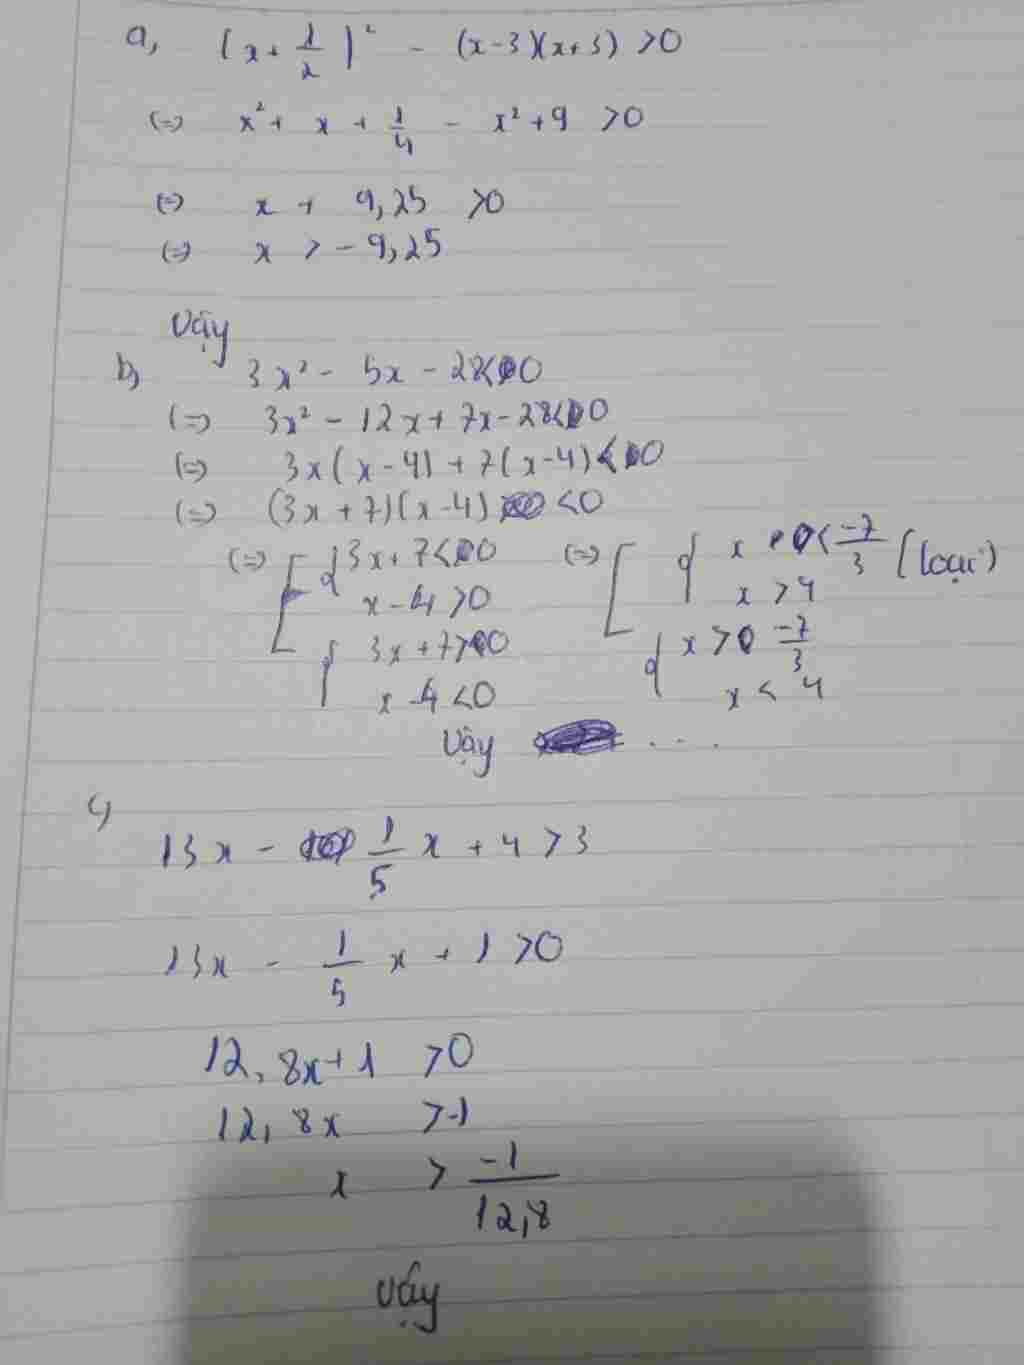 a, (x + 1/2)² - (x-3)(x+3) >0
(=) x² + x + 1/4 - x² + 9 >0
(=) x + 9,25 >0
(=) x > - 9,25
Vậy
b, 3x² - 5x - 28<0
(=) 3x² - 12x + 7x - 28<0
(=) 3x(x-4) + 7(x-4)<0
(=) (3x+7)(x-4) <0
(=) [ { 3x+7<0 (=) [ { x < -7/3 (loại)
x-4>0 x >4
{ 3x+7>0 { x > -7/3
x-4<0 x < 4
Vậy ...
c,
13x - 1/5 x + 4 >3
13x - 1/5 x + 1 >0
12,8x+1 >0
12,8x >-1
x > -1/12,8
Vậy